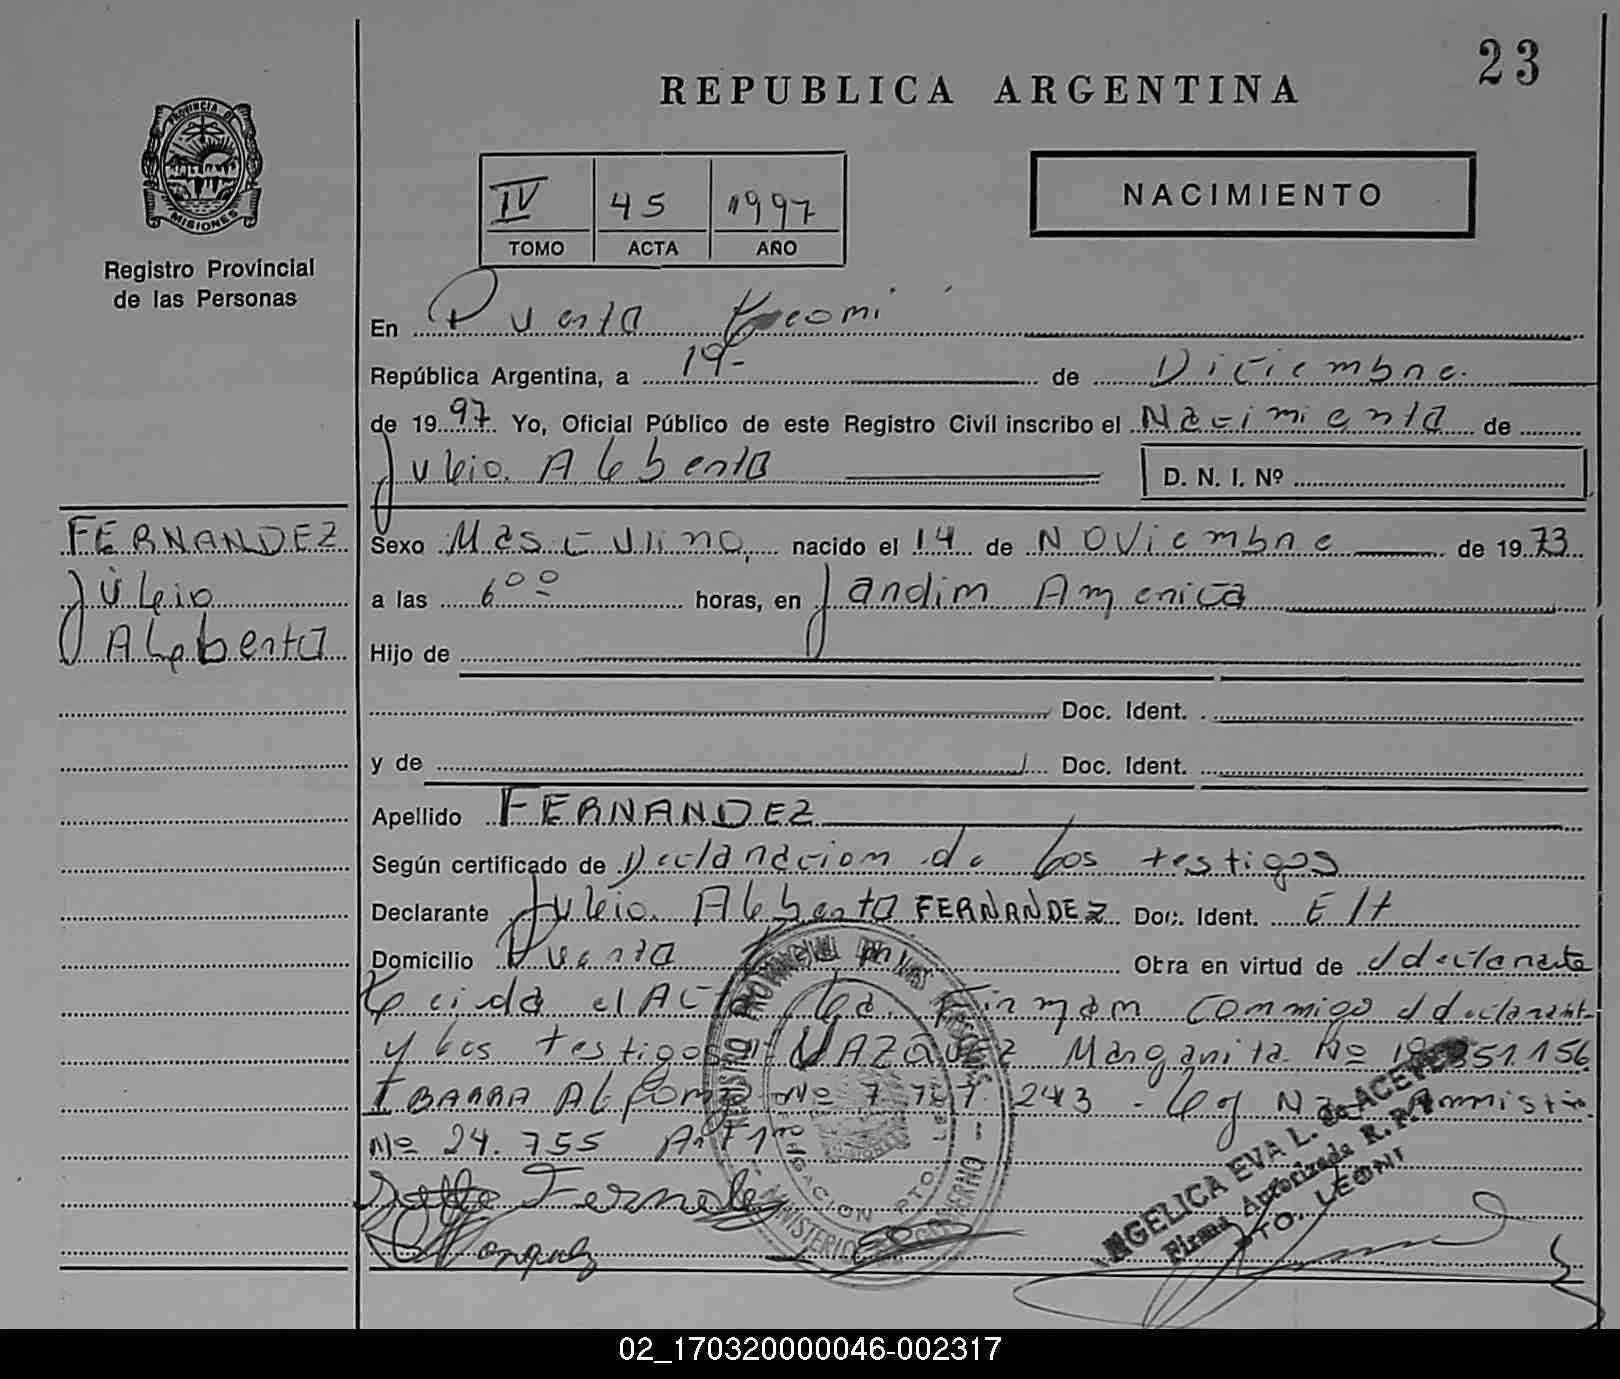 23
REPUBLICA ARGENTINA
PROVINCIA DE
MISIONES
Registro Provincial
de las Personas
IV 45 1997
TOMO ACTA AÑO
NACIMIENTO
En Puerto Leoni
República Argentina, a 19- de Diciembre
de 1997. Yo, Oficial Público de este Registro Civil inscribo el Nacimiento de
Julio Alberto D. N. I. Nº
FERNANDEZ
Julio
Alberto
Sexo Masculino, nacido el 14 de Noviembre de 1973
a las 6 00 horas, en Jardim America
Hijo de
Doc. Ident.
y de Doc. Ident.
Apellido FERNANDEZ
Según certificado de Declaracion de los testigos
Declarante Julio Alberto FERNANDEZ Doc. Ident. E/t
Domicilio Puerto Otra en virtud de declarante
Leida el Acta la Firmam commigo el declarant
y los testigos VAZQUEZ Margarita Nº 351.156
IBARRA Alfonso Nº 7 243 - Ley Nac
Nº 24.755 Art 1º
ANGELICA EVA L. de ACEVEDO
Firma Autorizada R. P. P.
PTO. LEONI
02_170320000046-002317